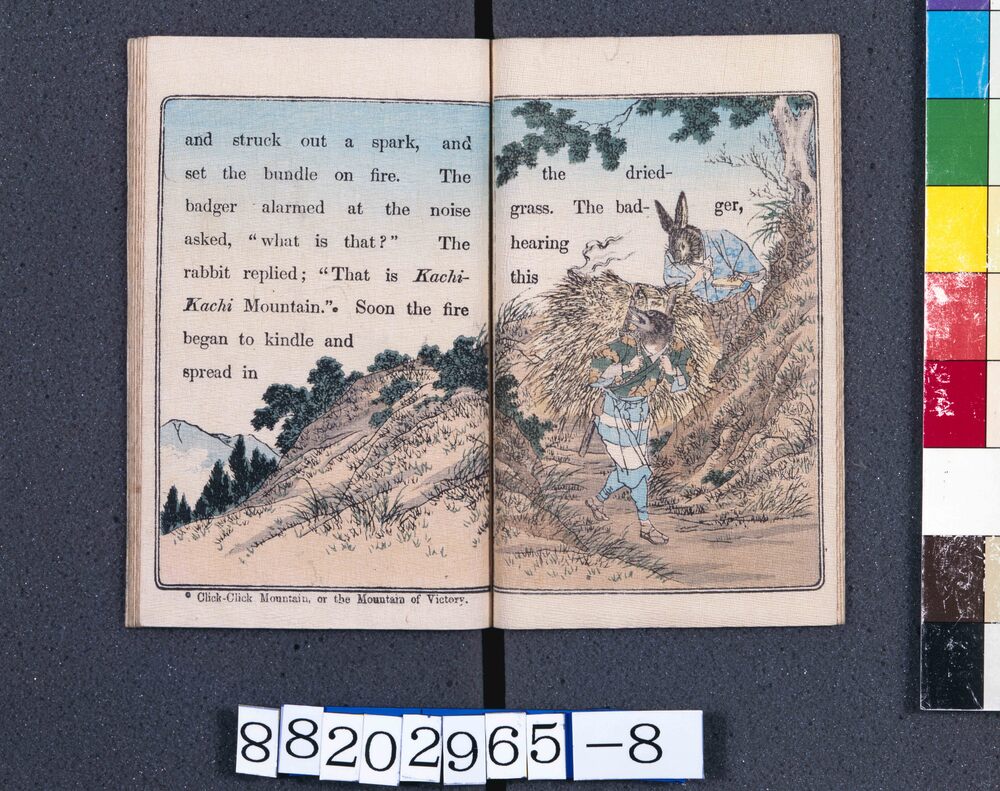 and struck out a spark, and
set the bundle on fire. The
badger alarmed at the noise
asked, “what is that?” The
rabbit replied; “That is Kachi-
Kachi Mountain.”. Soon the fire
began to kindle and
spread in
* Click-Click Mountain, or the Mountain of Victory.
the dried-
grass. The bad- ger,
hearing
this
88202965-8